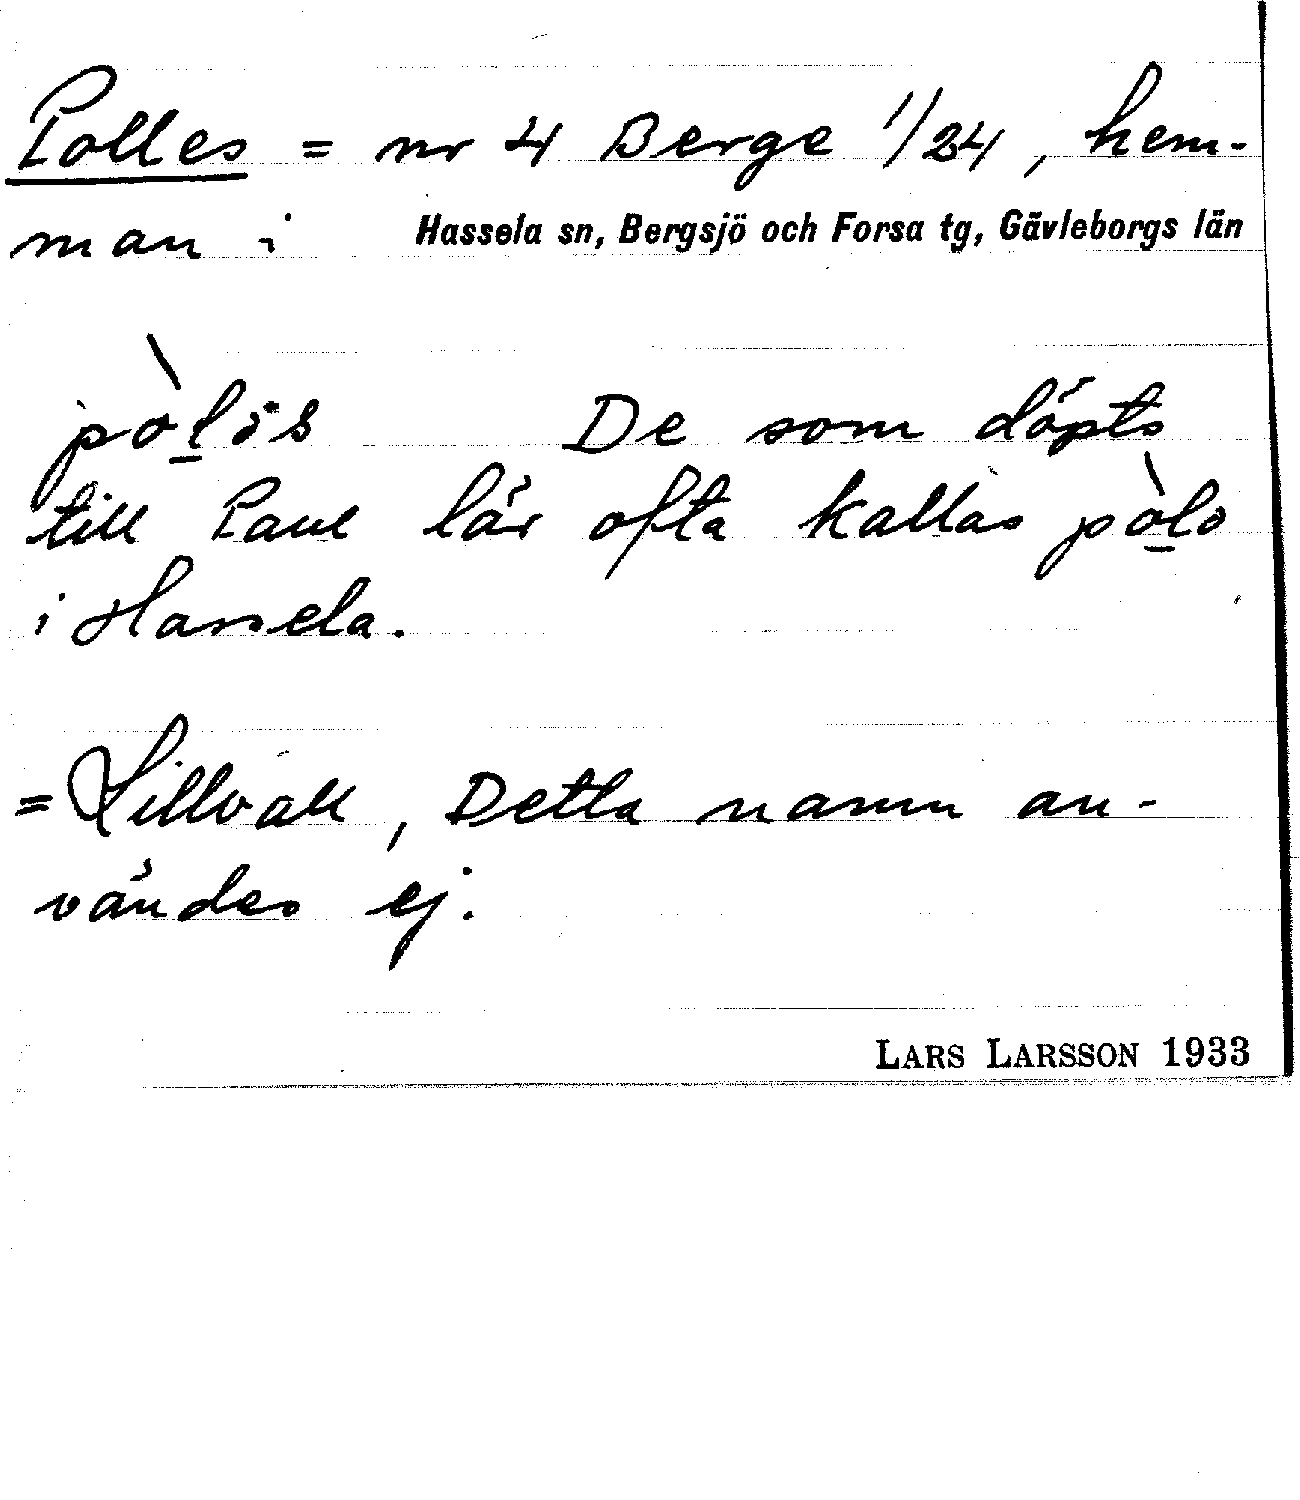 Polles = nr 4 Berge 1/24, hem-
man i Hassela sn, Bergsjö och Forsa tg, Gävleborgs län
pòlös De som döpts
till Paul lär ofta kallas pòlo
i Hassela.
= Lillvall, Detta namn an-
vändes ej.
LARS LARSSON 1933